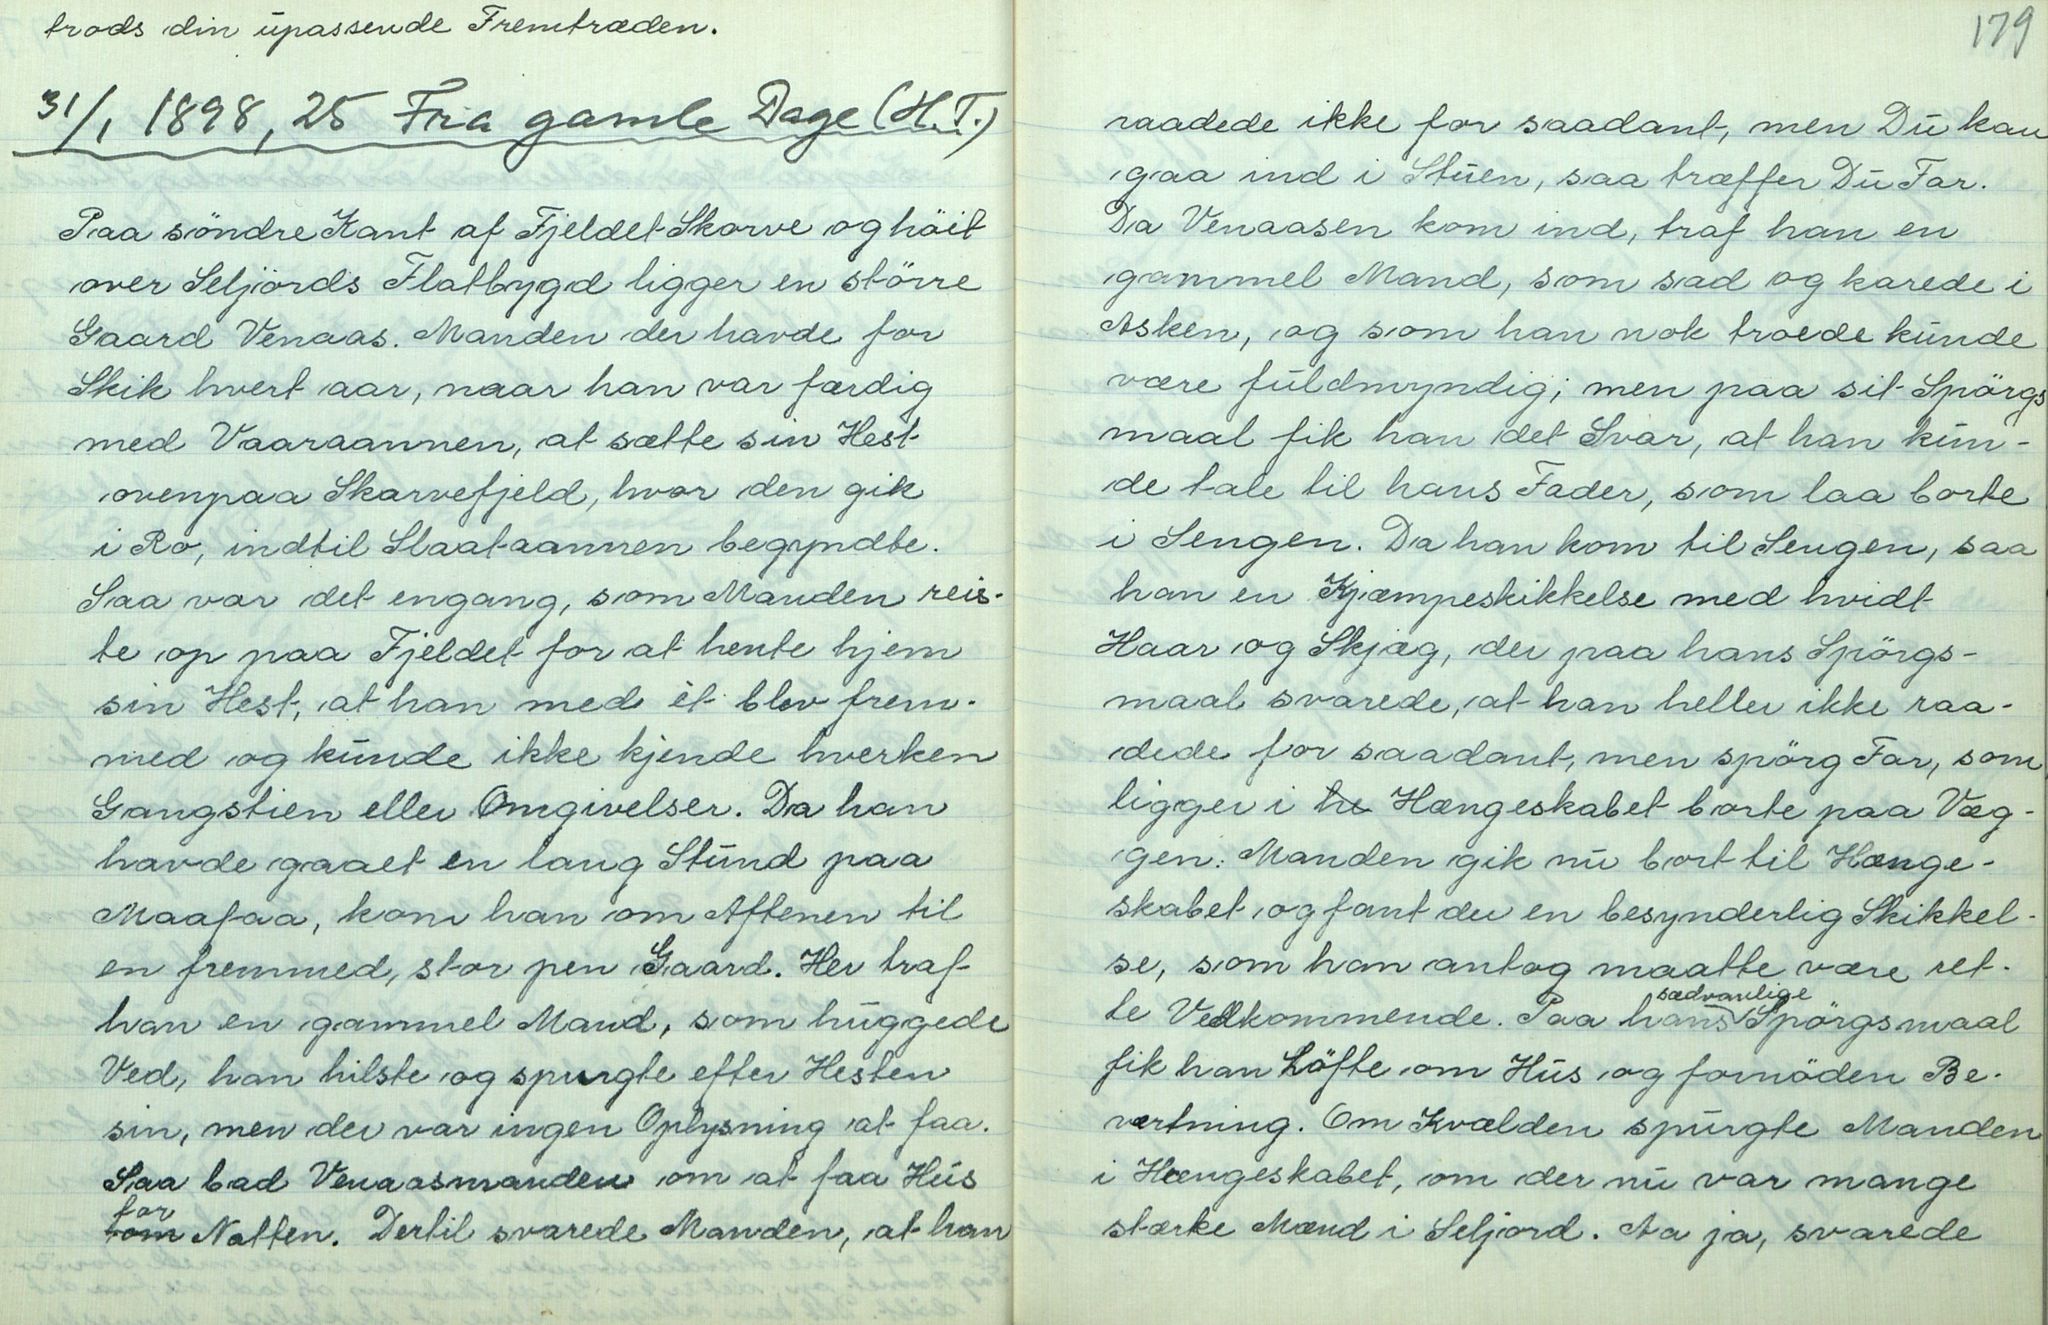 trods din upassende Fremtræden.
31/1 1898, 25 Fra gamle Dage (H.T.)
Paa söndre Kant af Fjeldet Skorve og höit
over Seljords Flatbygd ligger en större
Gaard Venaas. Manden der havde for
Skik hvert aar, naar han var færdig
med Vaaraannen, at sætte sin Hest
ovenpaa Skarvefjeld, hvor den gik
i Ro, indtil Slaataannen begyndte.
Saa var det engang, som Manden reis-
te op paa Fjeldet for at hente hjem
sin Hest, at han med ét blev frem-
med og kunde ikke kjende hverken
Gangstien eller Omgivelser. Da han
havde gaaet en lang Stund paa
Maafaa, kom han om Aftenen til
en fremmed, stor pen Gaard. Her traf
han en gammel Mand, som huggede
Ved, han hilste og spurgte efter Hesten
sin, men der var ingen Oplysning at faa.
Saa bad Venaasmanden om at faa Hus
for
om Natten. Dertil svarede Manden, at han
179
raadede ikke for saadant, men Du kan
gaa ind i Stuen, saa træffer Du Far.
Da Venaasen kom ind, traf han en
gammel Mand, som sad og karede i
Asken, og som han nok troede kunde
være fuldmyndig; men paa sit Spörgs
maal fik han det Svar, at han kun-
de tale til hans Fader, som laa borte
i Sengen. Da han kom til Sengen, saa
han en Kjæmpeskikkelse med hvidt
Haar og Skjæg, der paa hans Spörgs-
maal svarede, at han heller ikke raa-
dede for saadant, men spörg Far, som
ligger i he Hængeskabet borte paa Væg-
gen. Manden gik nu bort til Hænge-
skabet og fant der en besynderlig Skikkel-
se, som han antog maatte være ret-
sædvanlige
te Vedkommende. Paa hans Spörgsmaal
fik han Löfte om Hus og fornöden Be-
værtning. Om Kvælden spurgte Manden
i Hængeskabet, om der nu var mange
stærke Mænd i Seljord. Aa ja, svarede